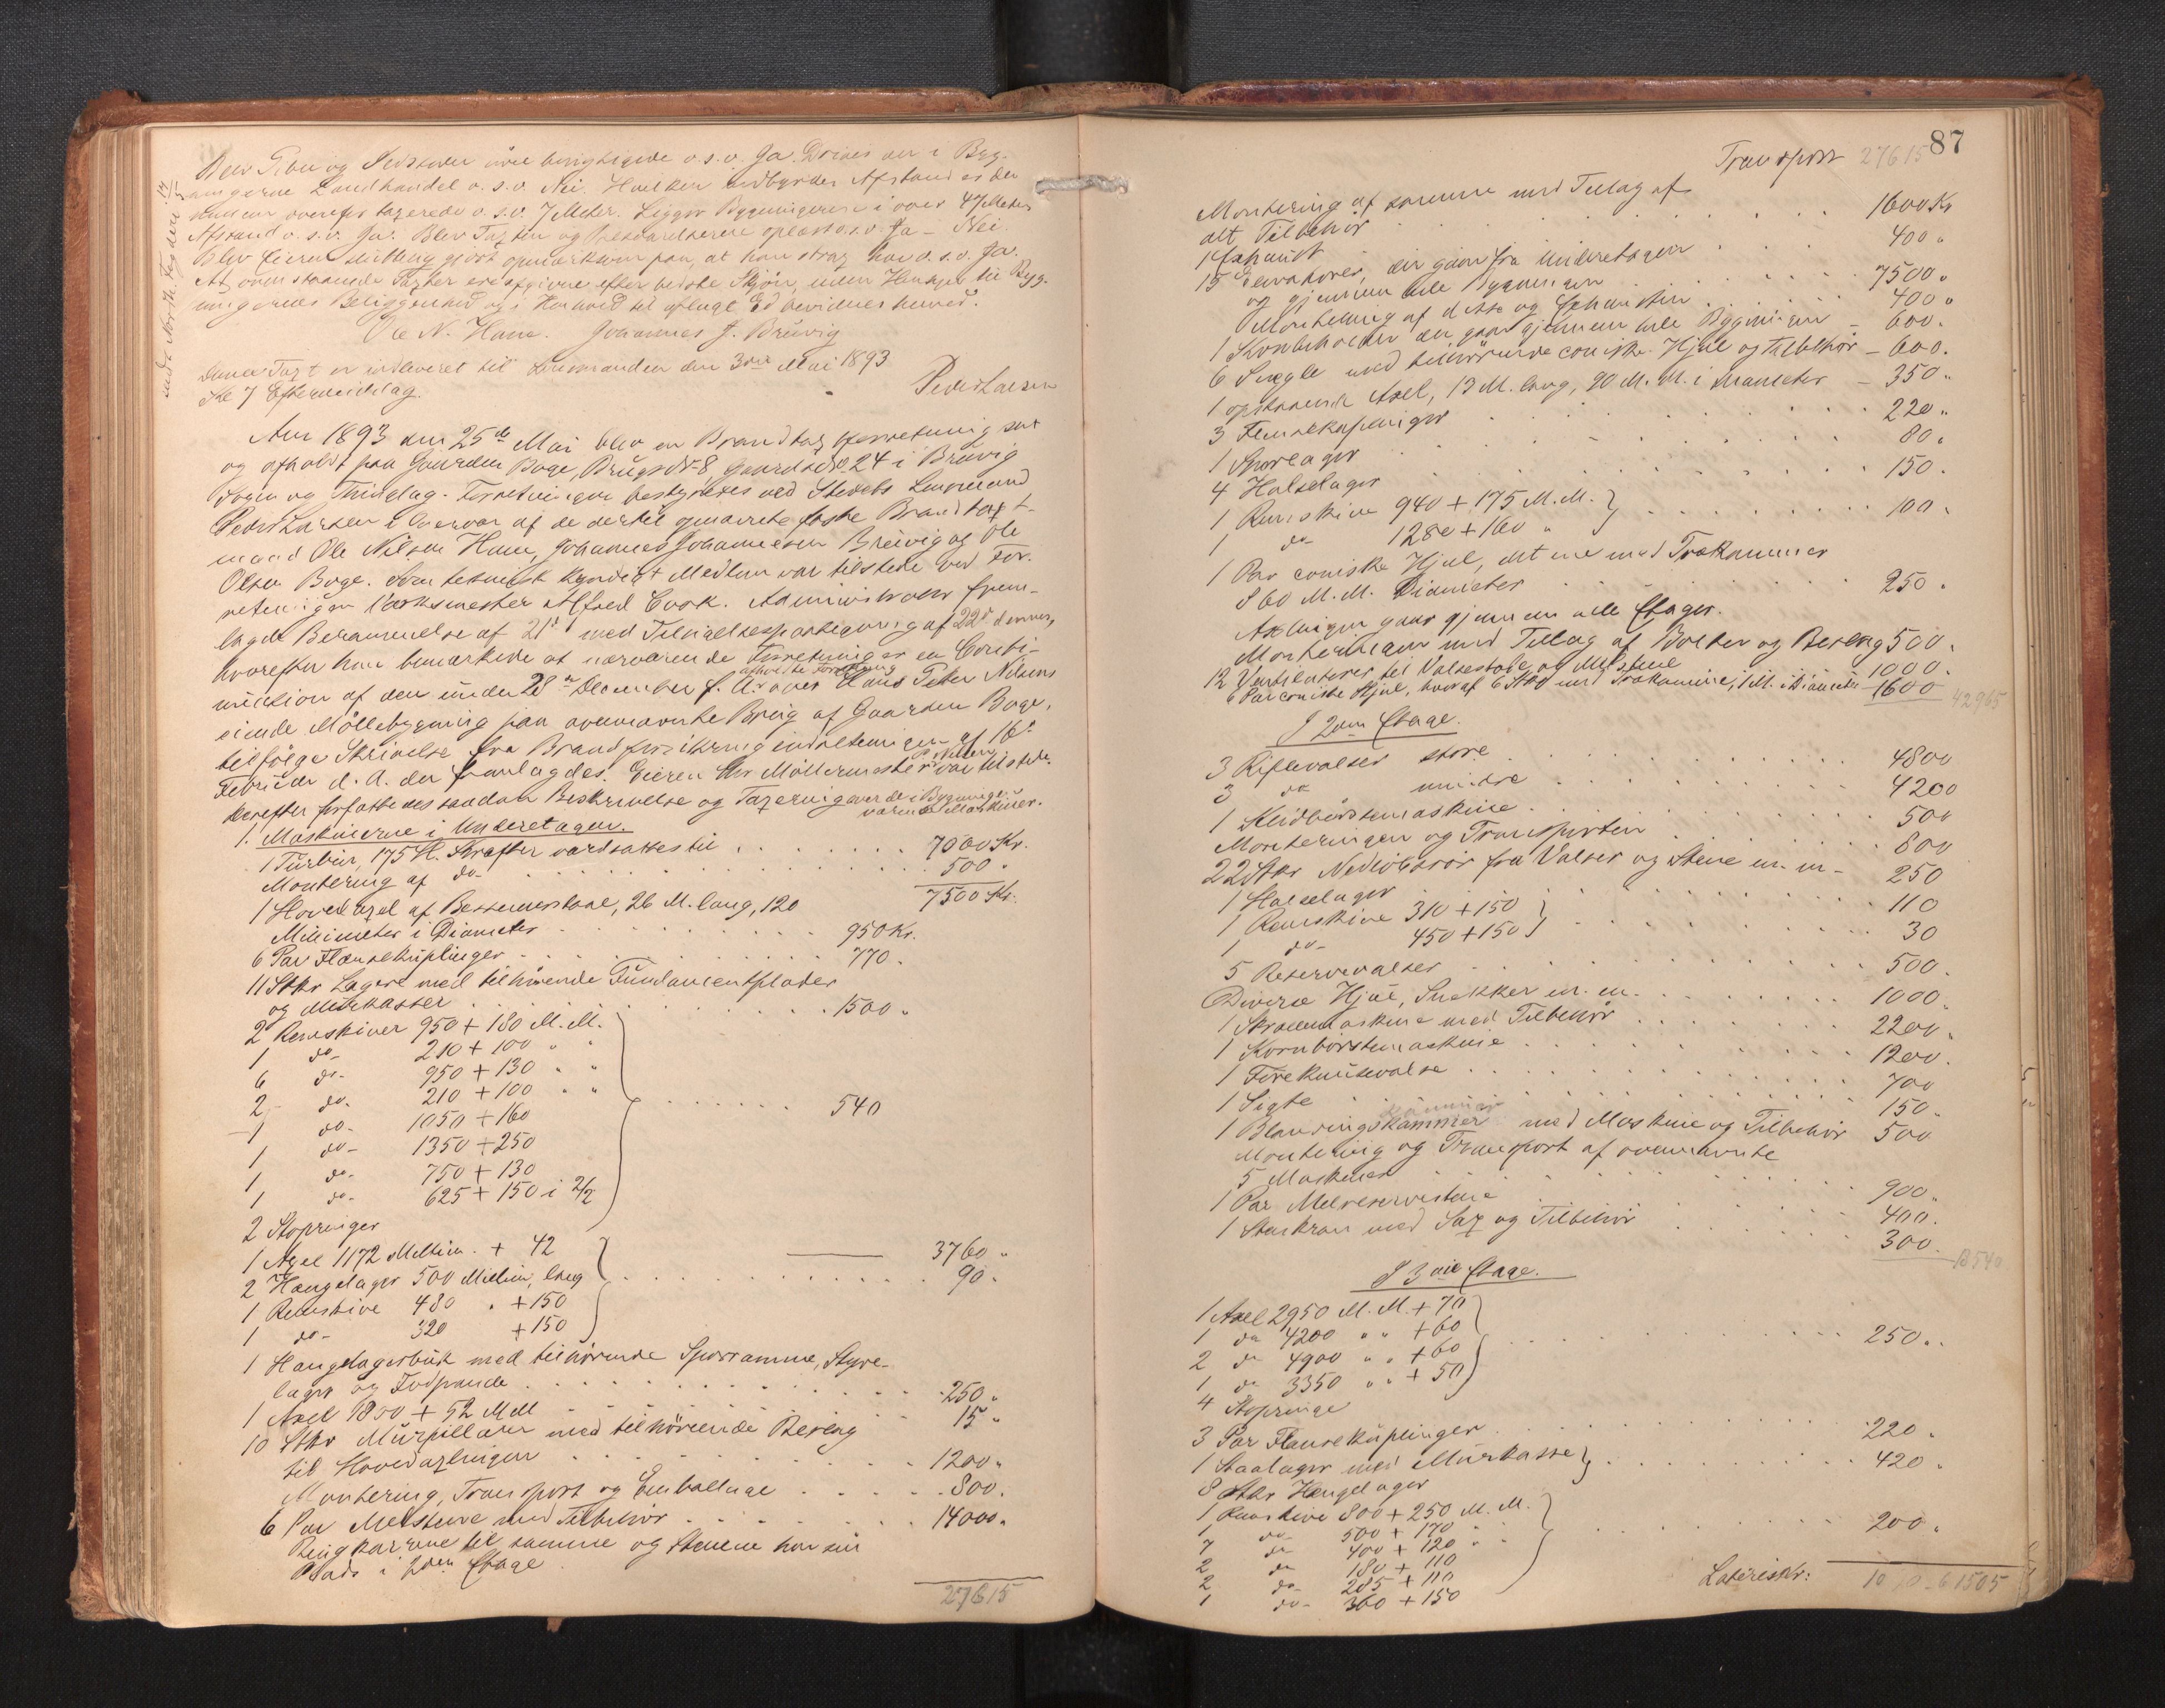 Blev Piber og Ildsteder nöie besigtigede o.s.v. Ja. Drives der i Byg-
ningerne Landhandel o.s.v. Nei. Hvilken indbyrdes Afstand er der
mellem ovenfor taxerede o.s.v. 7 Meter. Ligger Bygningerne i over 47 Meters
Afstand o.s.v. Ja. Blev Taxten og Besvarelserne oplæst o.s.v. Ja - Nei.
Blev Eieren sluttelig gjort opmærksom paa, at han strax har o.s.v. Ja.
At ovenstaaende Taxter ere afgivne efter bedste Skjön, uden Hensyn til Byg-
ningernes Beliggenhed og i Henhold til aflagt Ed bevidnes herved.
Ole N. Hane. Johannes J. Brüvig
Denne Taxt er indleveret til Lensmanden den 3die Mai 1893
Kl 7 Eftermiddag.
Peder Larsen
Aar 1893 den 25de Mai blev en Brandtaxtforretning sat
og afholdt paa Gaarden Boge, Brugs No 8, Gaards No 24 i Brüvig
Sogn og Thinglag. Forretningen bestyredes ved Stedets Lensmand
Peder Larsen i Overvær af de dertil opnævnte faste Brandtaxt-
mænd Ole Nilsen Hane, Johannes Johannesen Brüvig og Ole
Olsen Boge. Som teknisk kyndigt Medlem var tilstede ved For-
retningen Værksmester Alfred Cook. Administrator frem-
lagde Berammelse af 21d med Tilsigelsespaategning af 22d dennes,
hvorefter han bemærkede at nærværende Forretning er en Conti-
nuation af den under 28de December f. A. afholdte Forretning over Hans Peter Nilsens
eiende Möllebygning paa ovennævnte Brug af Gaarden Boge,
tilfölge Skrivelse fra Brandforsikringsindretningen af 16d
Februar d. A. der fremlagdes. Eieren Hr Möllermester P. Nilsen var tilstede.
Derefter forfattedes saadan Beskrivelse og Taxering over de i Bygningen værende Maskiner.
1. Maskinerne i Underetagen.
1 Turbin, 175 H. Kræfter værdsattes til . . . . 7000 Kr.
Montering af do . . . . 500 "
7500 Kr.
1 Hovedaxel af Bessemerstaal, 26 M. lang, 120
Millimeter i Diameter . . . . 950 Kr.
6 Par Flanskuplinger . . . . 770 "
11 Stkr Lagere med tilhörende Fundamentplader
og Murkasser . . . . 1500 "
2 Remskiver 950 + 180 M.M.
1 do- 210 + 100 " "
6 do- 950 + 130 " "
2 do- 210 + 100 " "
1 do- 1050 + 160 . . . . 540
1 do- 1350 + 250
1 do- 750 + 130
1 do- 625 + 150 i 2/2
2 Stopringer
3760 "
1 Axel 1172 Millim. + 42
2 Hængelager 500 Millim, lang . . . . 90 "
1 Remskive 480 " + 150
1 do- 320 + 150
1 Hængelagerbuk med tilhörende Sporramme, Styre-
lager og Fodpande . . . . 250 "
1 Axel 1850 + 52 M M . . . . 15 "
10 Stkr Murpillarer med tilhörende Beslag
til Hovedaxlingen . . . . 1200 "
Montering, Transport og Emballage . . . . 800 "
6 Par Melstene med Tilbehör . . . . 14000 "
Ringkarrene til samme og Stenene har sin
Plads i 2den Etage
27615
87
Transport 27615
Montering af samme med Tillag af
alt Tilbehör . . . . 1600 Kr
1 Exhaust . . . . 400 "
15 Elevatorer, der gaar fra Underetagen
og gjennem hele Bygningen . . . . 7500 "
Montering af disse og Exhausten . . . . 400 "
1 Kornbeholder der gaar gjennem hele Bygningen - 600 "
6 Snegle med tilhörende coniske Hjul og Tilbehör - 600 "
1 opstaaende Axel, 13 M. lang, 90 M.M. i Diameter - 350 "
3 Flanskuplinger . . . . 220 "
1 Sporlager . . . . 80 "
4 Halslager . . . . 150 "
1 Remskive 940 + 175 M.M.
1 do- 1280 + 160 " . . . . 100 "
1 Par coniske Hjul, det ene med Trækammer
860 M.M. Diameter . . . . 250 "
Axlingen gaar gjennem alle Etager.
Monteringen med Tillag af Bolter og Beslag 500 "
12 Ventilatorer til Valsestole og Melstene 1000 "
6 Par coniske Hjul, hvoraf 6 Stkr med Trækamme, 1 M. i Diameter 1600
42965
I 2den Etage.
3 Riflevalser store . . . . 4800
3 do " mindre . . . . 4200
1 Klidbörstemaskine . . . . 500
Monteringen og Transporten . . . . 800
22 Stkr Nedlöbsrör fra Valser og Stene m. m - 250
1 Halslager . . . . 110
1 Remskive 310 + 150
1 do- 450 + 150 . . . . 30
5 Reservevalser . . . . 500 "
Diverse Hjul, Snekker m. m. . . . . 1000 "
1 Skrællemaskine med Tilbehör . . . . 2200 "
1 Kornbörstemaskine . . . . 1200 "
1 Foreknusevalse . . . . 700
1 Sigte . . . . 150 "
1 Blandingskammer med Maskine og Tilbehör 500
Montering og Transport af ovennævnte
5 Maskiner . . . . 900 "
1 Par Melreservestene . . . . 400 "
1 Stenkran med Sax og Tilbehör . . . . 300 "
18540
I 3die Etage.
1 Axel 2950 M.M. + 70
1 do 4200 " " + 60
2 do 4900 " " + 60 . . . . 250 "
1 do 3350 " " + 50
4 Stopringe
3 Par Flanskuplinger . . . . 220 "
1 Staalager med Murkasse
8 Stkr Hængelager . . . . 420 "
1 Remskive 800 + 250 M.M.
1 do- 500 + 170 " "
7 do 400 + 120 " " . . . . 200 "
2 do 180 + 110
2 do- 285 + 110
1 do- 360 + 150
Lateris Kr: 61505